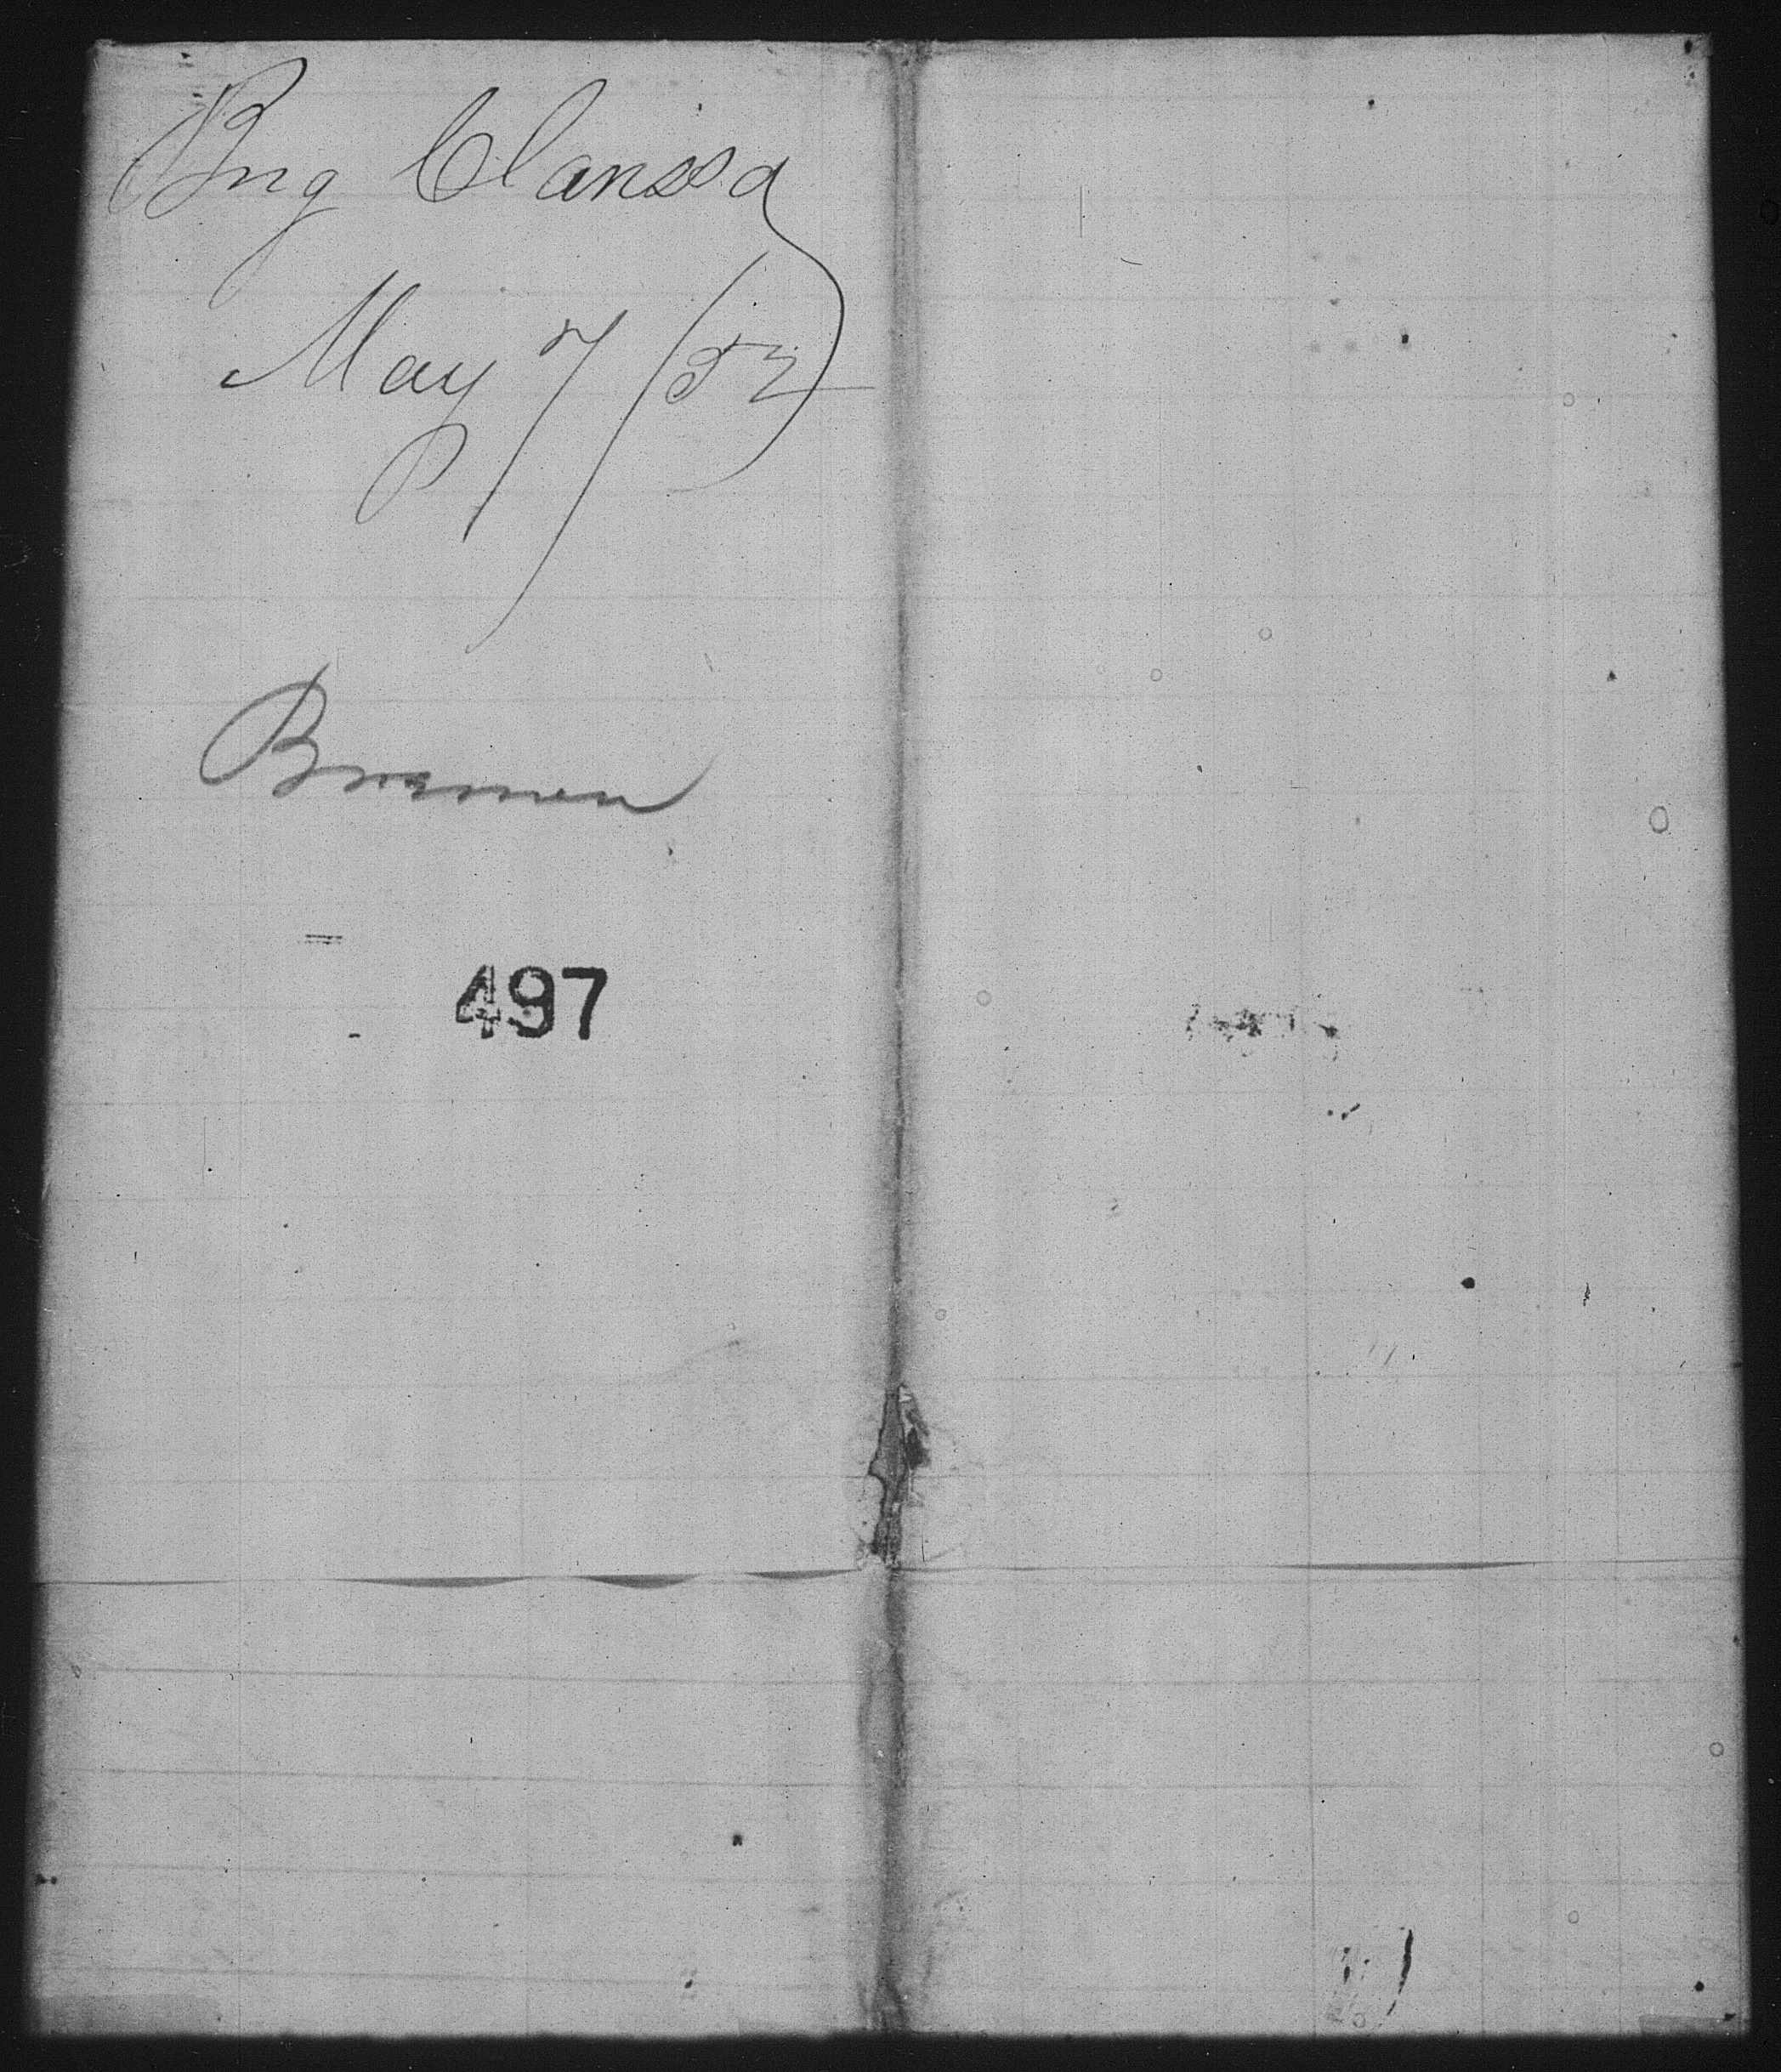 Brig Clarissa
May 7/52
Bremen
497